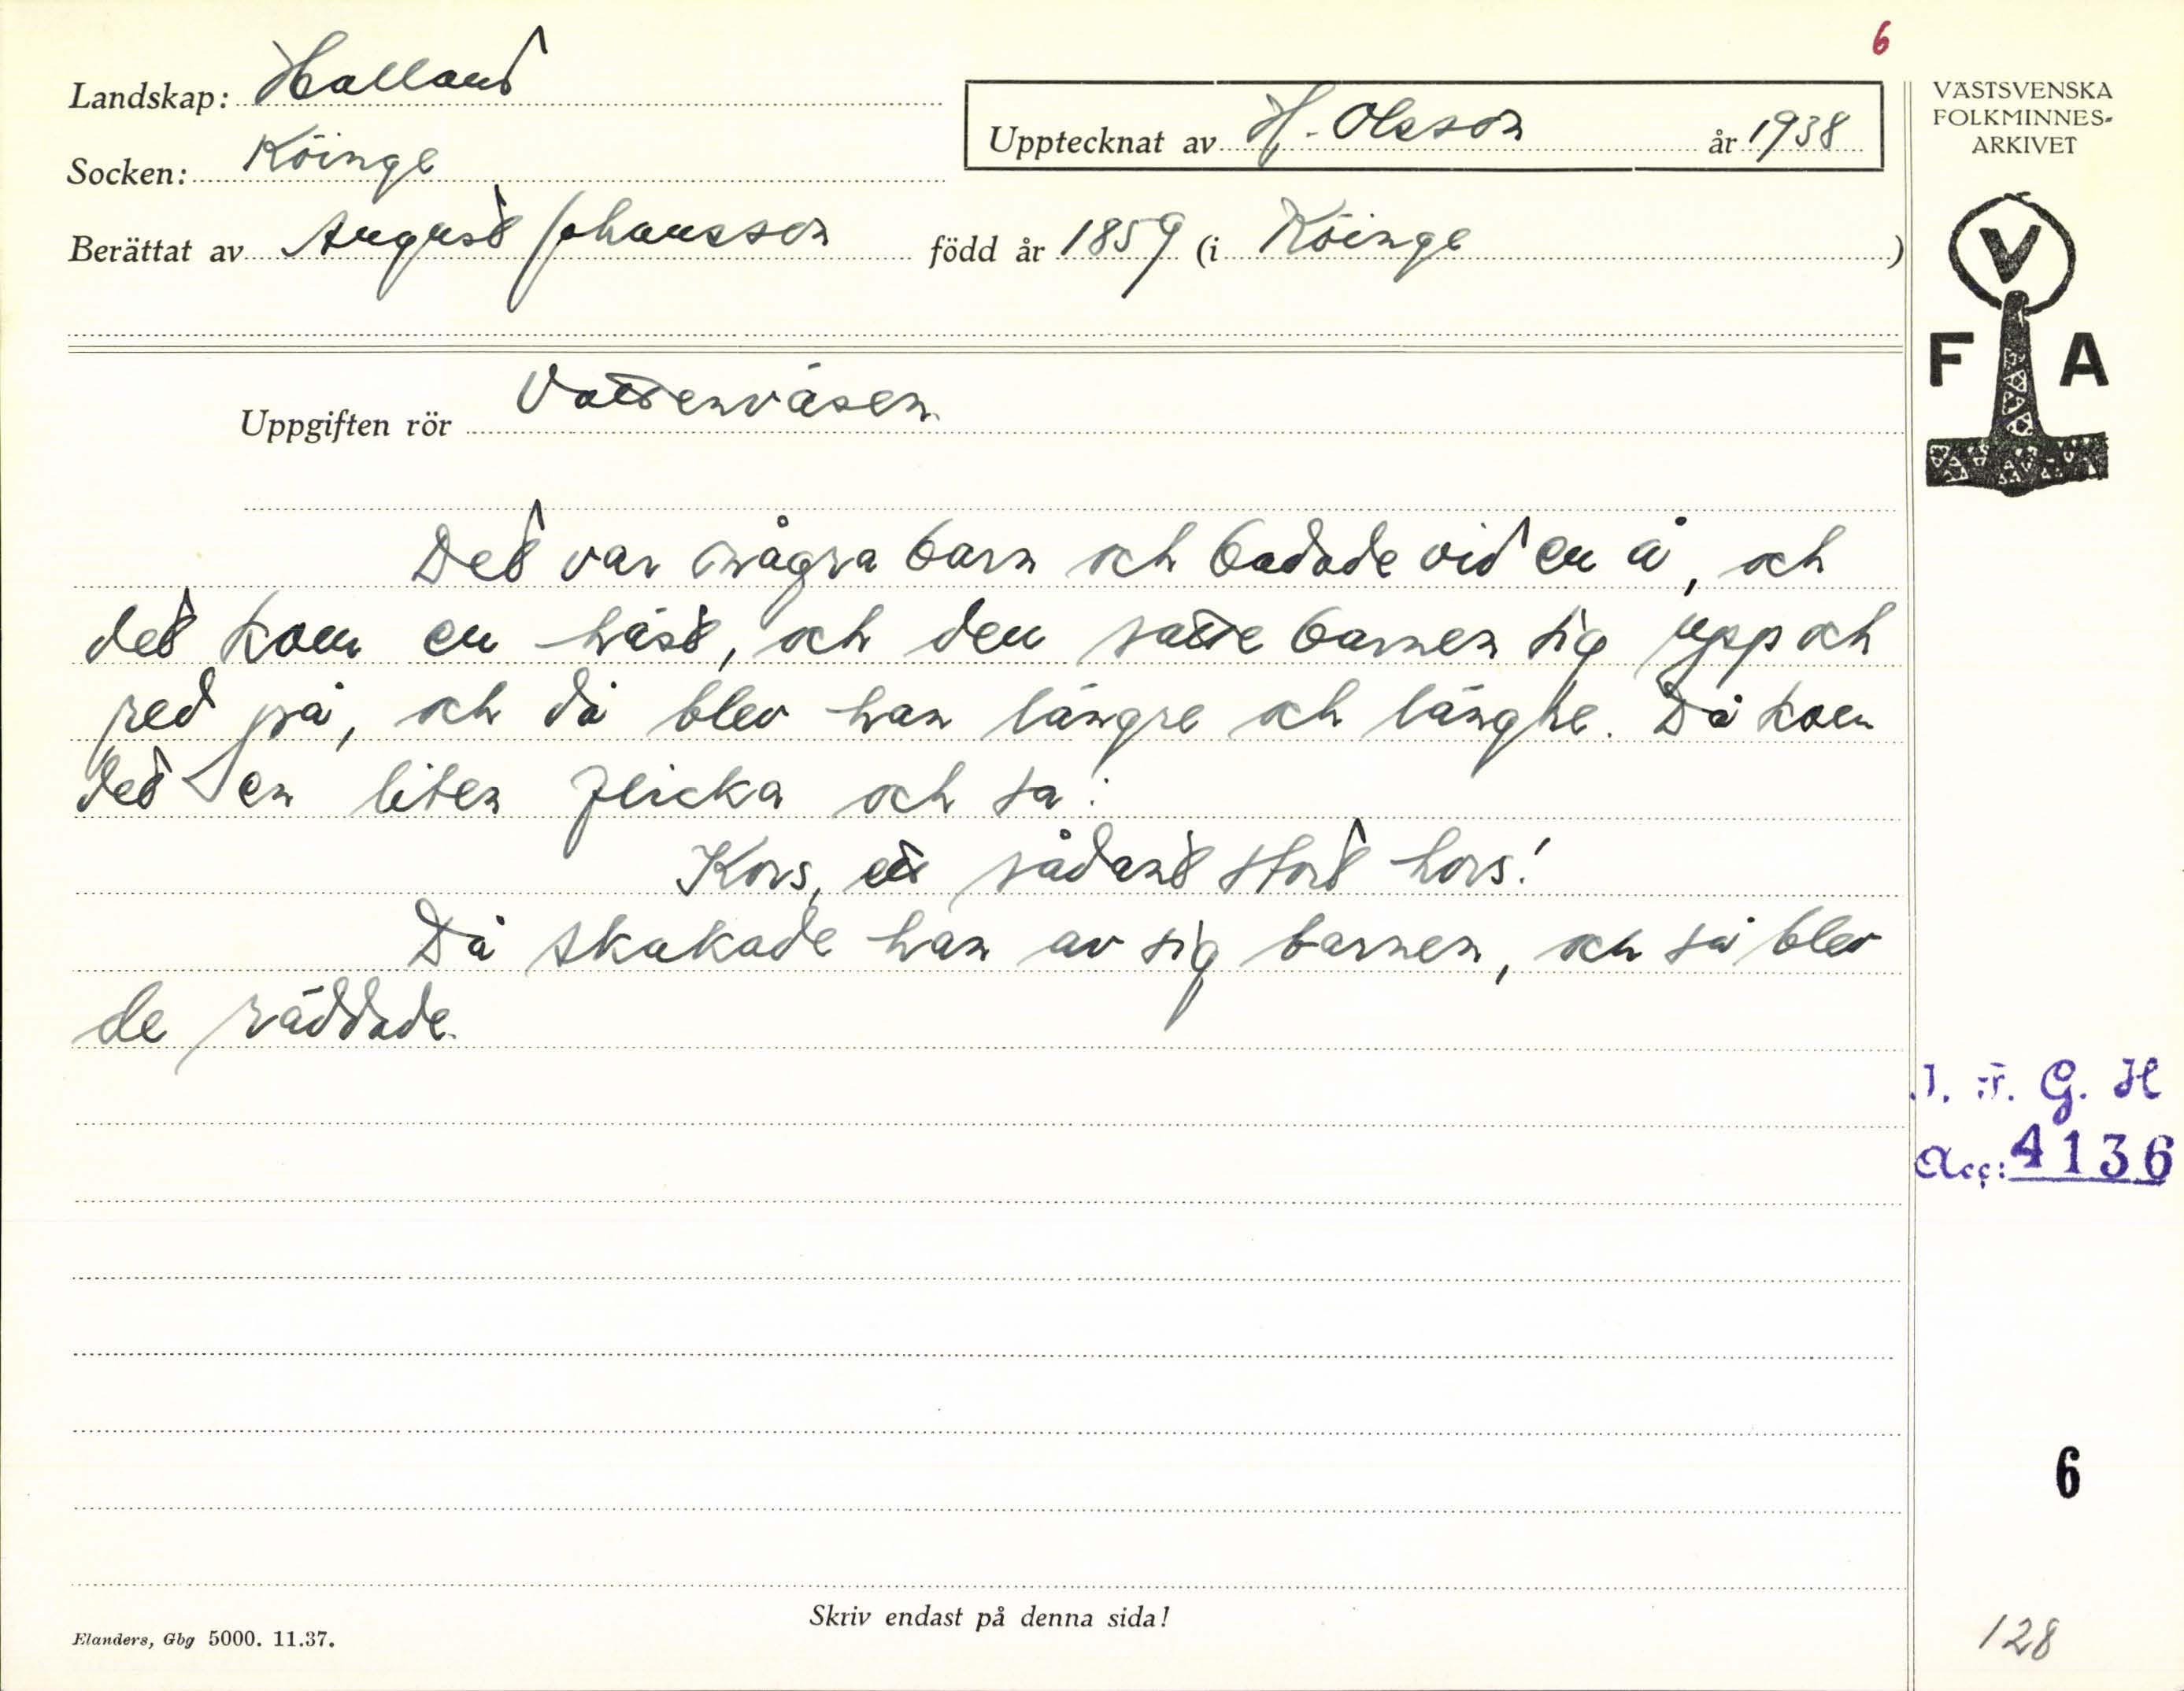 6
Landskap: Halland
Socken: Köinge
Upptecknat av H. Olsson år 1938
Berättat av August Johansson född år 1859 (i Köinge )
VÄSTSVENSKA
FOLKMINNES-
ARKIVET
V
F A
Uppgiften rör Vattenväsen.
Det var några barn och badade vid en å, och
det kom en häst, och den satte barnen sig upp och
red på, och då blev han längre och länghe. Då kom
det en liten flicka och sa:
Kors, ett sådant stort hors!
Då skakade han av sig barnen, och så blev
de räddade.
I. F. G. H
Acc: 4136
6
Skriv endast på denna sida!
Elanders, Gbg 5000. 11.37.
128